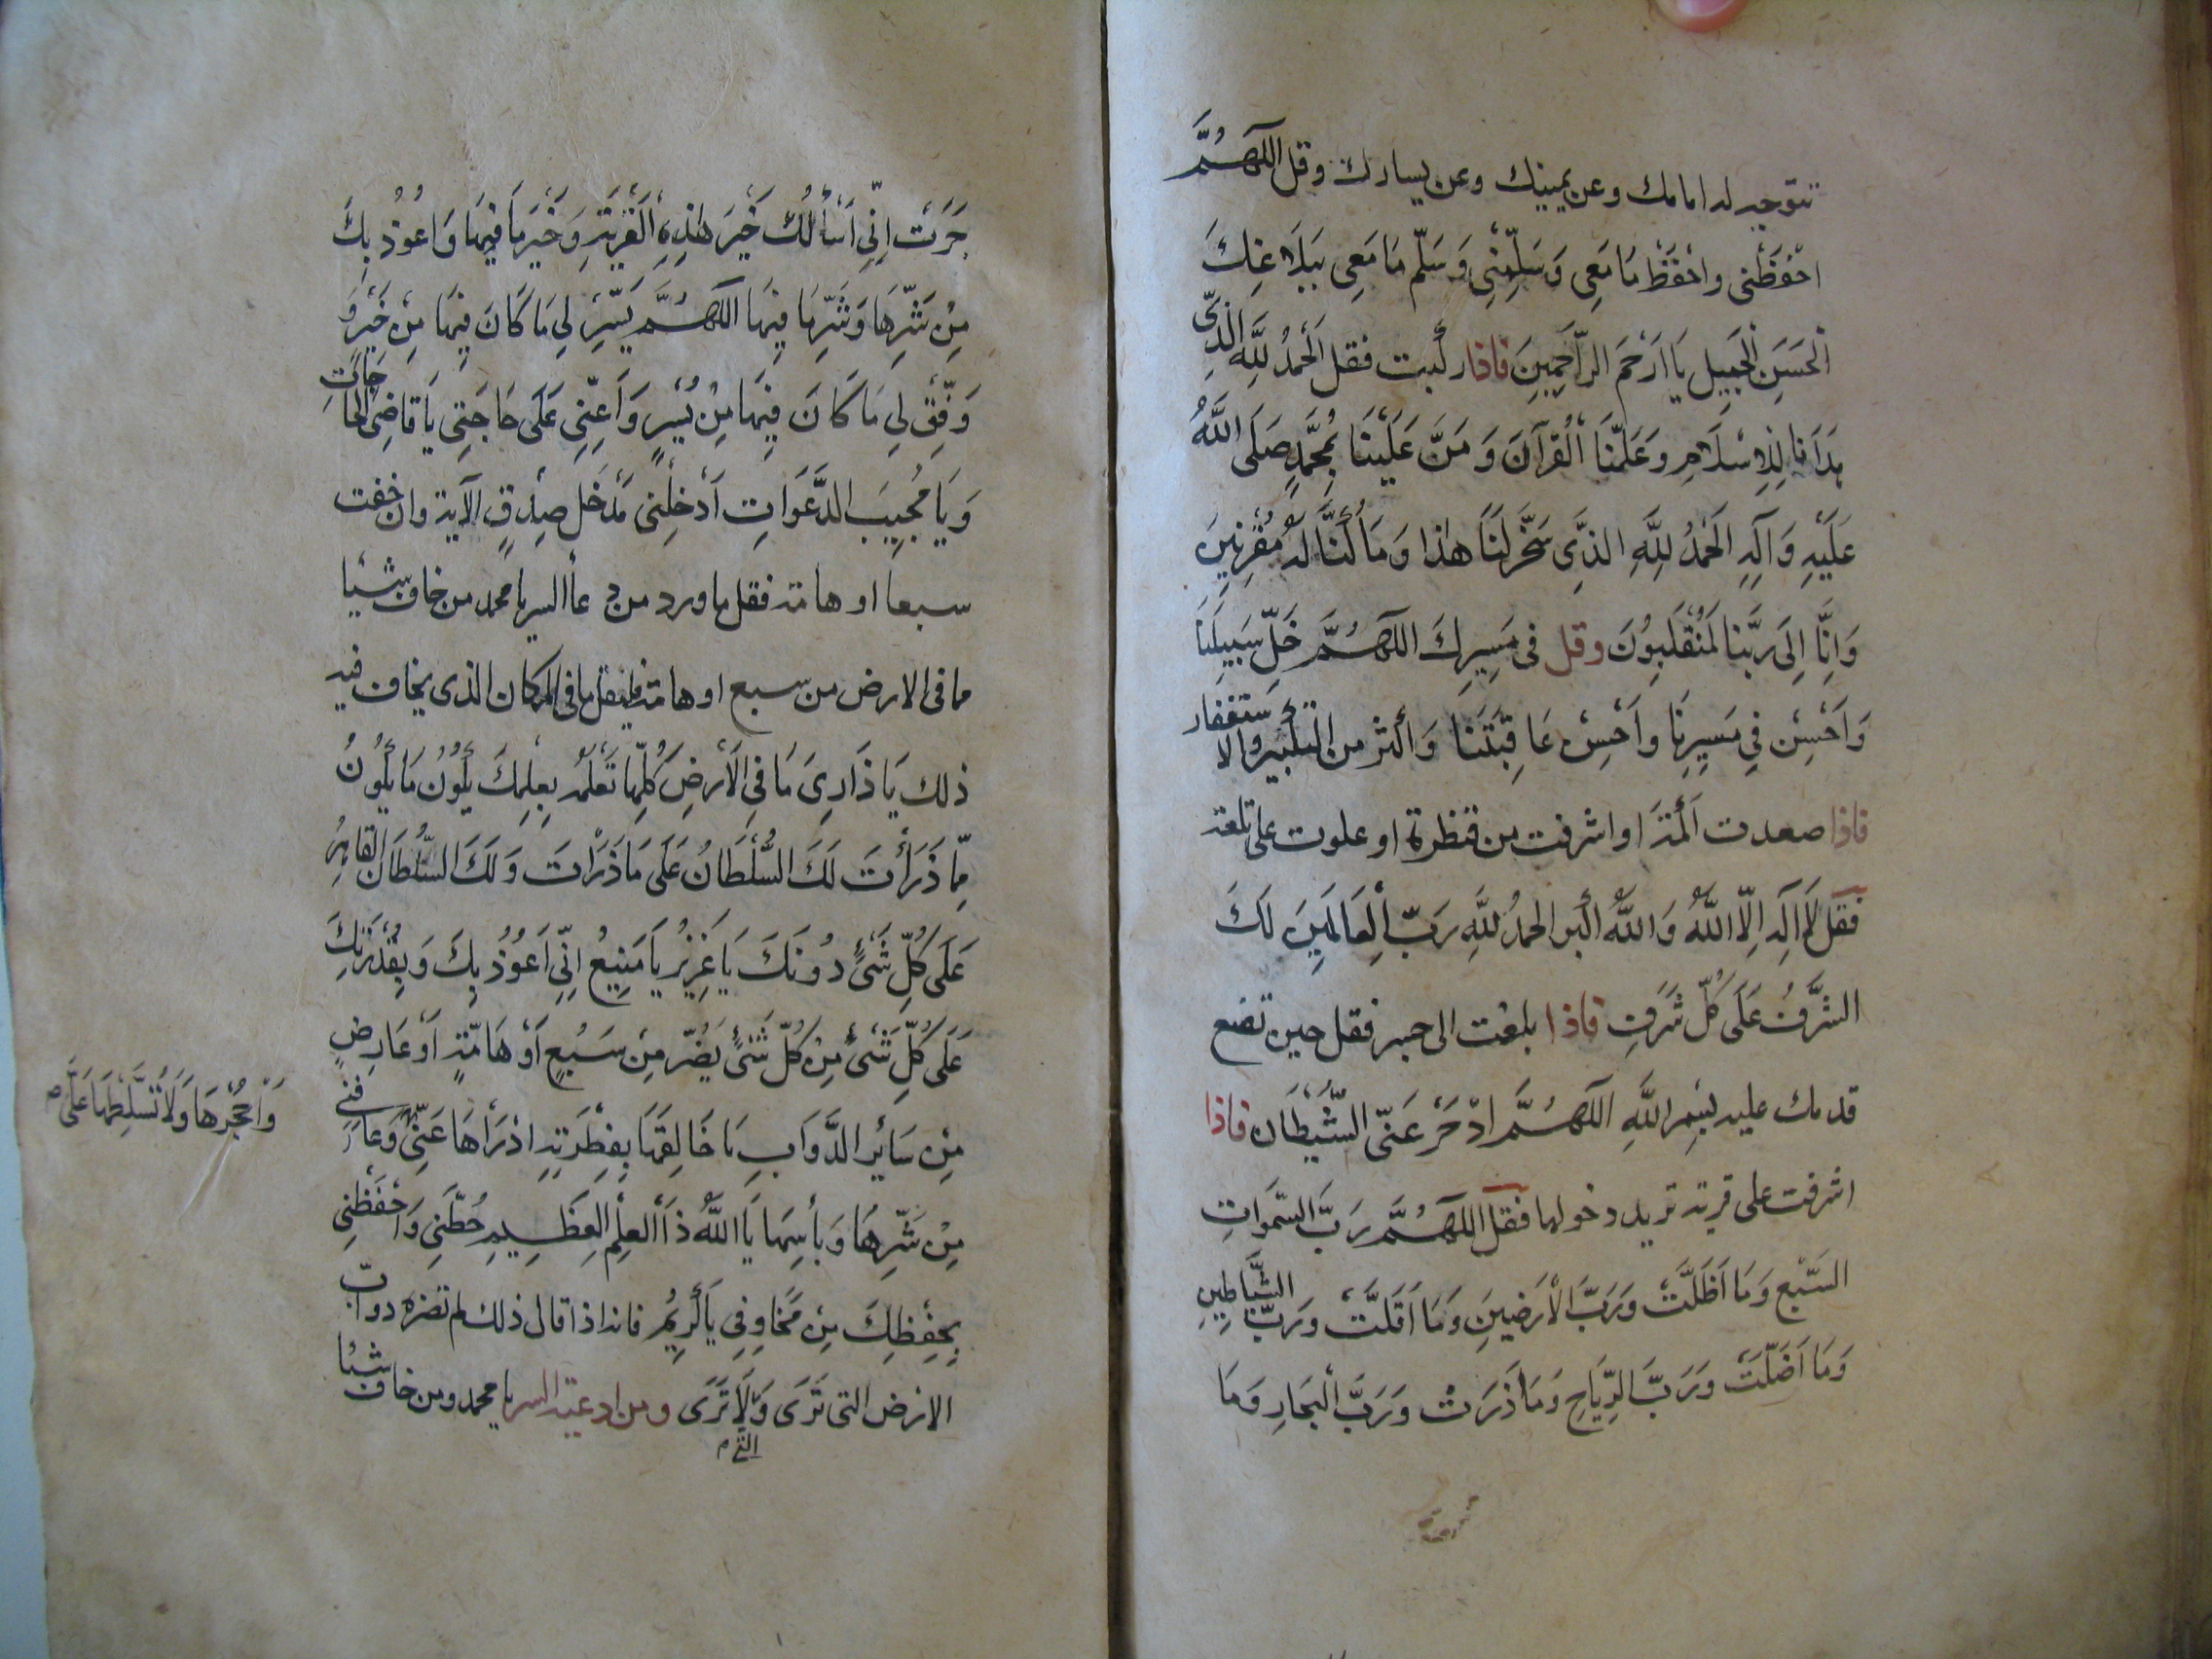 تتوجه له امامك وعن يمينك وعن يسارك وقل اللّٰهُمَّ
احْفَظْنى واحْفَظْ مَا مَعِى وَسَلِّمْنِى وَسَلِّم مَا مَعِى بِبَلَاغِكَ
الْحَسَنِ الْجَمِيلِ يَا اَرْحَمَ الرَّاحِمِينَ فاذا ركبت فقل اَلْحَمْدُ لِلَّهِ الَّذِى
هَدَانا لِلْاِسْلَامِ وَعَلَّمَنَا الْقُرآنَ وَ مَنَّ عَلَيْنَا بِمُحَمَّدٍ صَلَى اللَّهُ
عَلَيْهِ وَآلِهِ اَلْحَمْدُ لِلَّهِ الَّذِى سَخَّرَ لَنَا هٰذا وَمَا كُنَّا لَهُ مُقْرِنِينَ
وَاِنَّا اِلَى رَبِّنا لَمُنْقَلِبُونَ وقل فى مَسِيرِكَ اللّٰهُمَّ خَلِّ سَبِيلَنَا
وَاَحْسِنْ فِي مَسِيرِنَا وَاَحْسِنْ عَاقِبَتَنَا وَأكثر من التكبير والاستغفار
فاذا صعدت اَكَمَةً او اشرفت من قنطرة او علوت على تلعة
فقل لَا اِلَهَ اِلّا اللَّهُ وَاللَّهُ اكبر الحمدُ لِلَّهِ رَبِّ الْعَالَمِينَ لَكَ
الشَّرَفُ عَلَى كُلِّ شَرَفٍ فاذا بلغت الى جسر فقل حين تضع
قدمك عليه بِسْمِ اللَّهِ اللّٰهُمَّ ادْحَرْ عَنّى الشَّيْطَان فاذا
اشرفت على قرية تريد دخولها فقل اللّٰهُمَّ رَبَّ السَّمَوَاتِ
السَّبْعِ وَمَا اَظَلَّتْ وَرَبَّ الْاَرَضِينَ وَمَا اَقَلَّتْ وَرَبَّ الشَّيَاطِينِ
وَمَا اَضَلَّتْ وَرَبَّ الرِّيَاحِ وَمَا ذَرَتْ وَرَبَّ الْبِحَارِ وَمَا
جَرَتْ اِنِّي اَسْأَلُكَ خَيْرَ هٰذِهِ الْقَرْيَةِ وَخَيْرَ مَا فِيهَا وَاعُوذُ بِكَ
مِنْ شَرِّهَا وَشَرِّ مَا فِيهَا اللّٰهُمَّ يَسِّرْ لِي مَا كَانَ فِيهَا مِنْ خَيْرٍ وَ
وَفِّقْ لِي مَا كَانَ فِيهَا مِنْ يُسْرٍ وَاَعِنِّي عَلَى حَاجَتِى يَا قَاضِىَ الْحَاجَاتِ
وَيَا مُجِيبَ الدَّعَوَاتِ اَدْخِلْنِى مُدْخَلَ صِدْقٍ الآية وان خفت
سبعا او هامة فقل ما ورد من ادعية السر يا محمد من خاف شيئا
مما فى الارض من سبع او هامة فليقل ما فى المكان الذى يخاف فيه
ذلك يَا ذَارِئَ مَا فِي الْاَرْضِ كُلِّهَا تَعْلَمُ بِعِلْمِكَ يَكُونُ مَا يَكُونُ
مِمّا ذَرَأْتَ لَكَ السُّلْطَانُ عَلَى مَا ذَرَأْتَ وَلَكَ السُّلْطَانُ الْقَاهِرُ
عَلَى كُلِّ شَىْءٍ دُونَكَ يَا عَزِيزُ يَا مَنِيعُ اِنِّي اَعُوذُ بِكَ وَبِقُدْرَتِكَ
عَلَى كُلِّ شَىْءٍ مِنْ كُلِّ شَىْءٍ يَضُرّ مِنْ سَبُعٍ اَوْ هَامَّةٍ اَوْ عَارِضٍ
مِنْ سَائِرِ الدَّوَابِ يَا خَالِقَهَا بِفِطْرَتِهِ ادْرَأْهَا عَنِّي وَعَافِنِي
وَاحْجُزْهَا وَلَا تُسَلِّطْهَا عَلَىَّ
مِنْ شَرِّهَا وَبَأسِهَا يَا اللَّهُ ذَا الْعِلْمِ الْعَظِيمِ حُطْنِي وَاحْفَظْنِي
بِحِفْظِكَ مِنْ مَخَاوِفِي يَا كَرِيمُ فانه اذا قال ذلك لم تضره دواب
الارض التى تَرَى وَالَّتِي لَا تَرَى ومن ادعية السر يا محمد ومن خاف شيئا